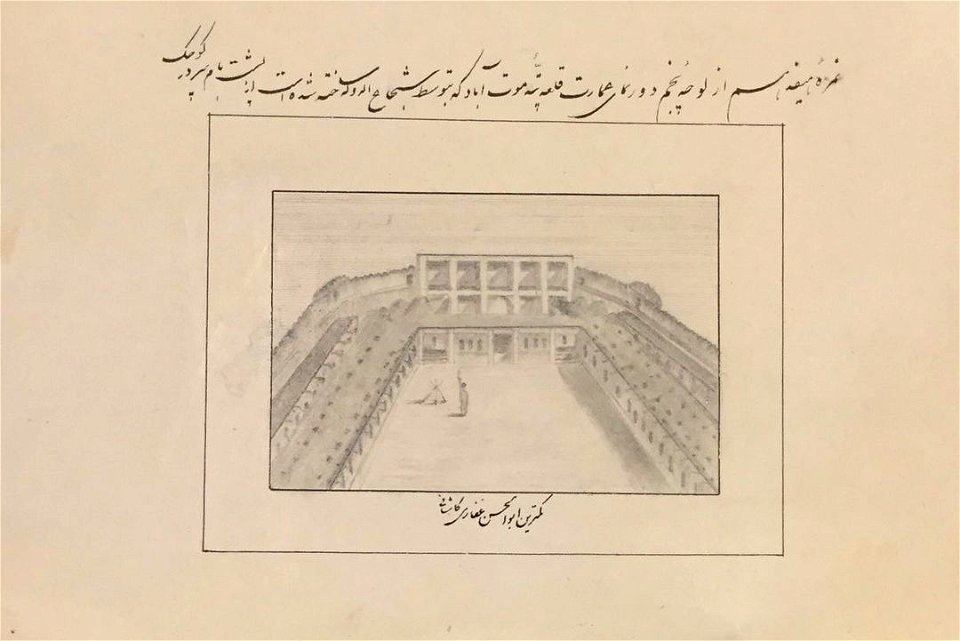 نمرهٔ هیفدهم از لوحه پنجم دورنمای عمارت قلعه پشّه موت آباد که بتوسط شجاع الدوله ساخته شده است از پشت بام سر در کوچک
کمترین ابوالحسن غفاری کاشانی